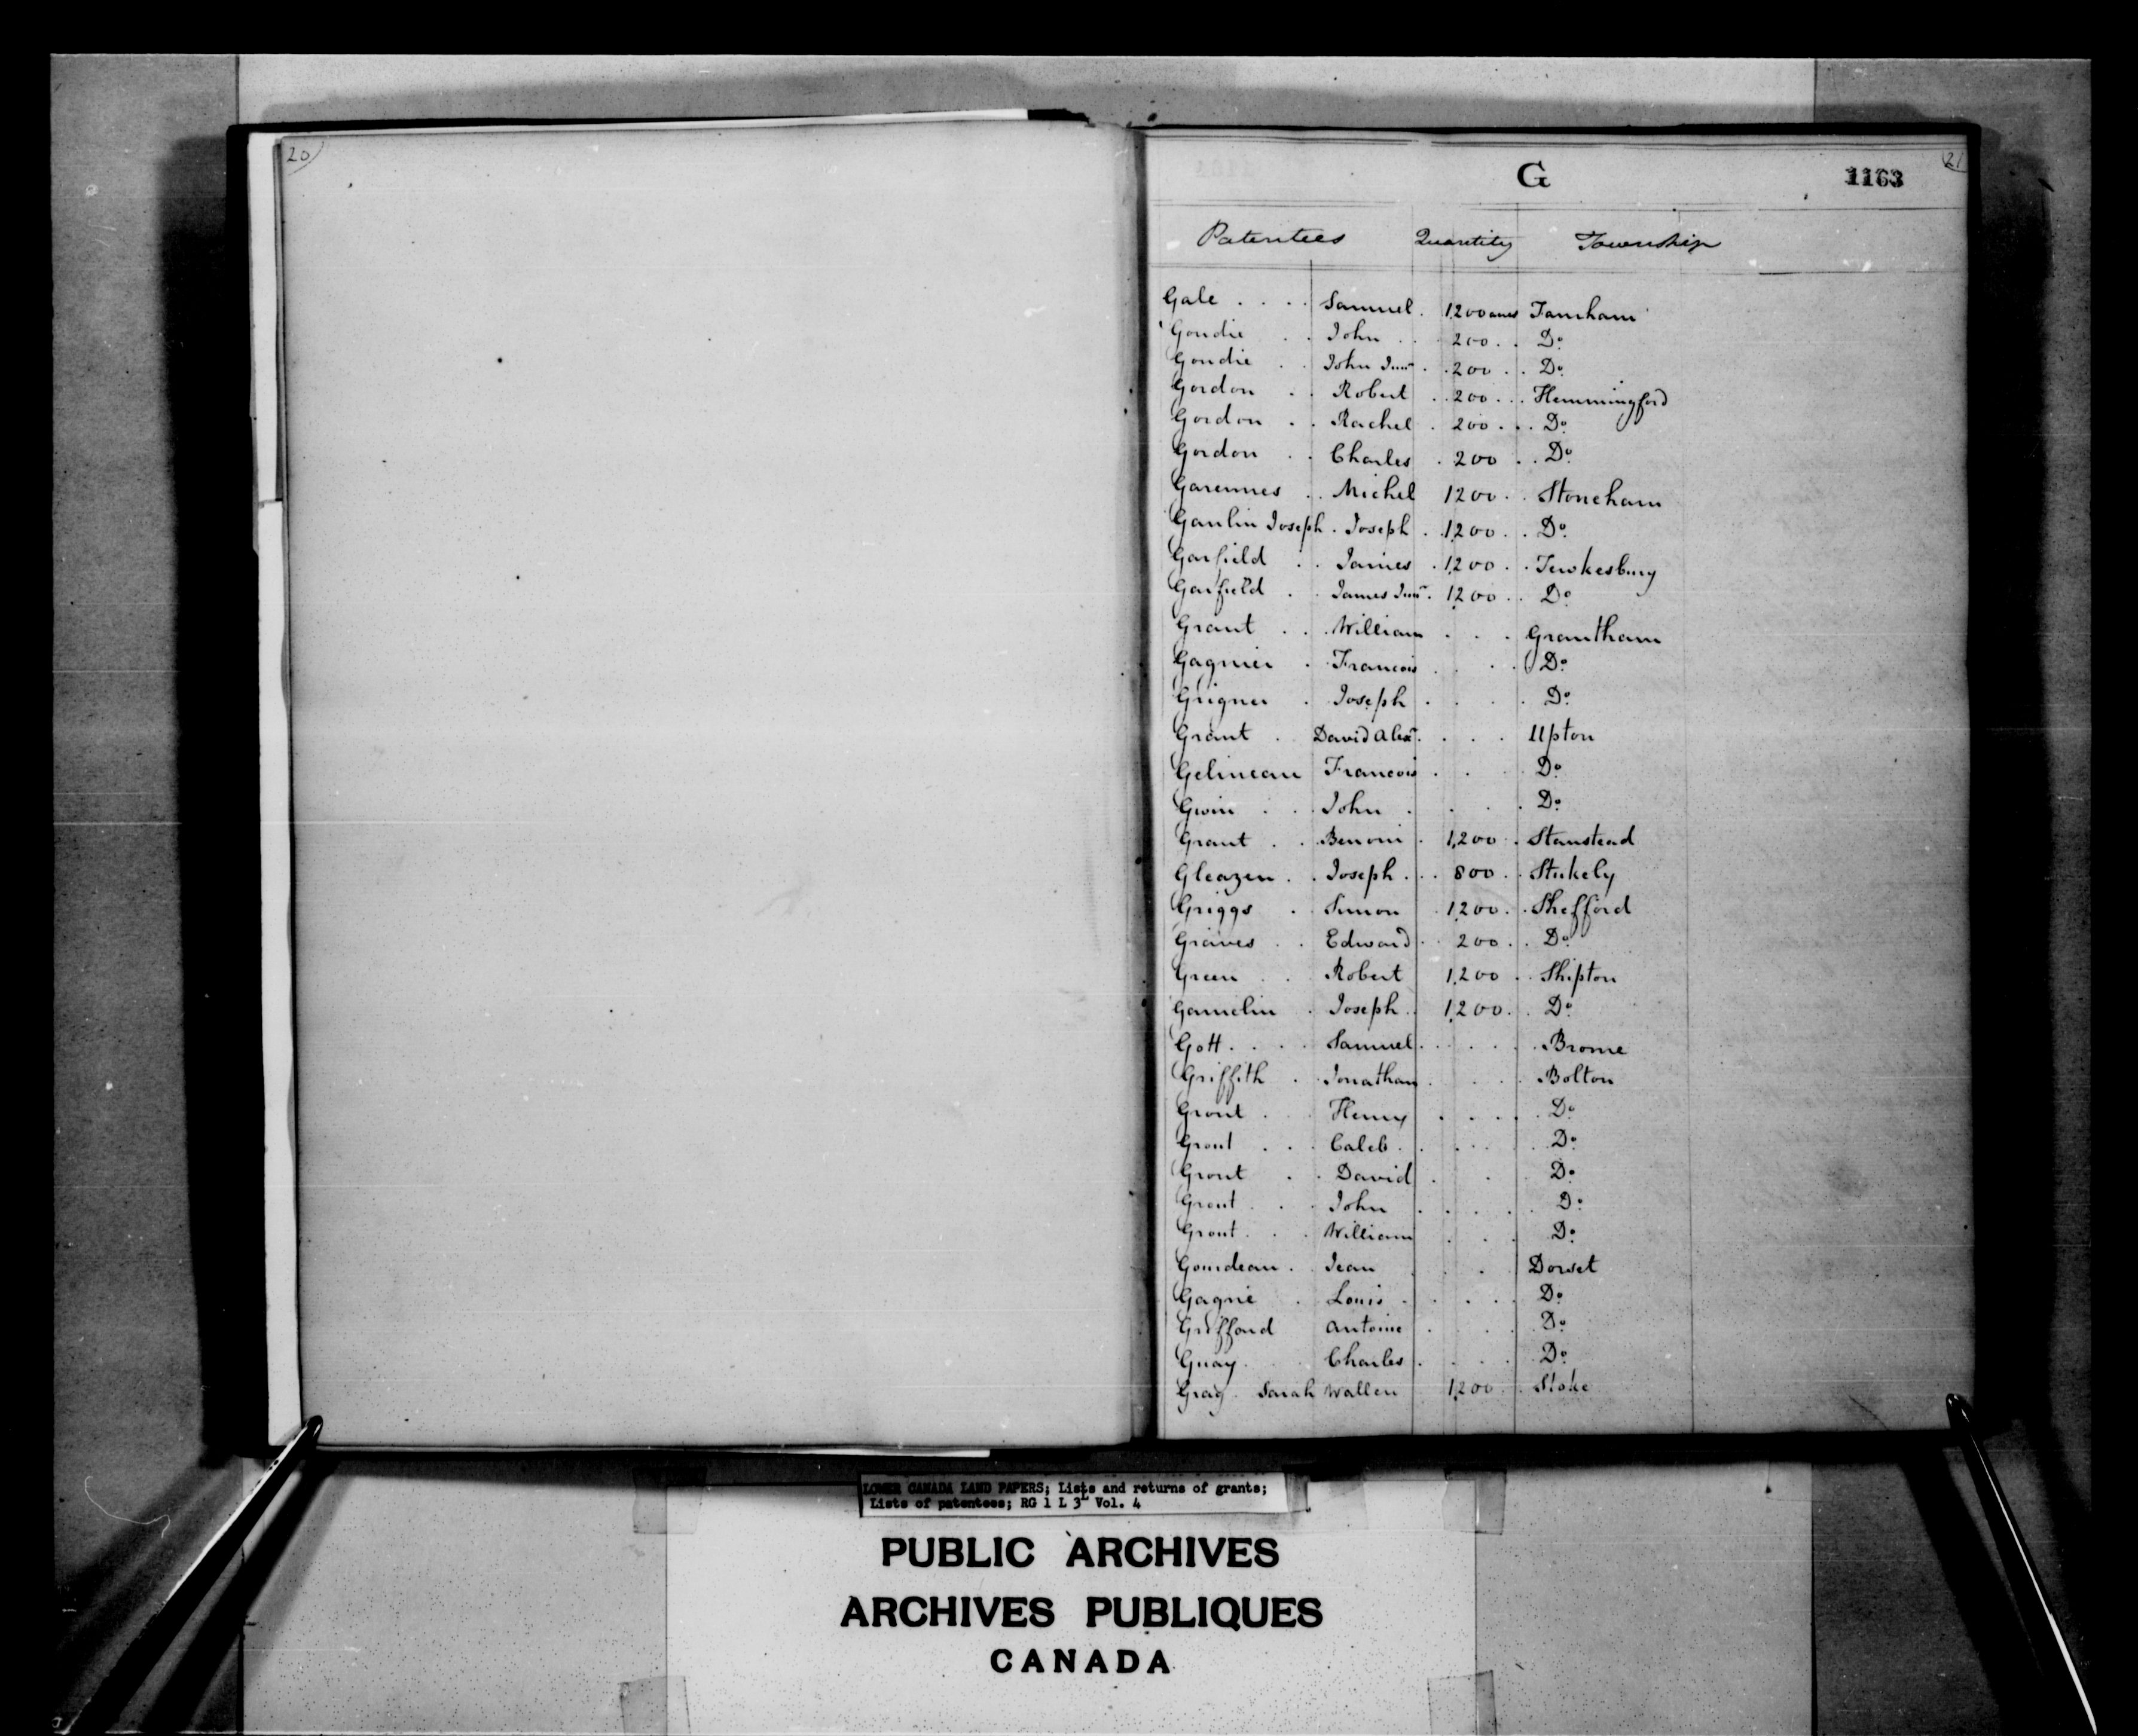 20
21
G
1163
Patentees Quantity Township
Gale . . . . Samuel . 1,200 acres Farnham
Goudie . . John . . 200 . . Do
Goudie . . John Junr . . 200 . . Do
Gordon . . Robert . . 200 . . . Hemmingford
Gordon . . Rachel . 200 . . . Do
Gordon . . Charles . 200 . . Do
Garennes . . Michel 1200 . . Stoneham
Gaulin Joseph . Joseph . . 1,200 . . Do
Garfield . . James . 1,200 . . Tewkesbury
Garfield . . James Junr . 1,200 . . Do
Grant . . . William . . . Grantham
Gagnier . . Francois . . . Do
Grigner . . Joseph . . . . Do
Grant . David Alexr . . . . Upton
Gelineau Francois . . Do
Gwin . . . John . . . . Do
Grant . . . Benoni . 1,200 . . Stanstead
Gleazen . . Joseph . . . 800 . . Stukely
Griggs . Simon . 1,200 . . Shefford
Graves . . Edward . 200 . . Do
Green . . Robert 1,200 . . Shipton
Gamelin . Joseph . 1,200 . . Do
Gott . . . . Samuel . . . . . . Brome
Griffith . . Jonathan . . . . Bolton
Grout . . Henry . . . . . Do
Grout . . . Caleb . . . . . . Do
Grout . . David . . Do
Grout . . . John . . . . . Do
Grout . . . William . . . Do
Gourdeau . Jean . . Dorset
Gagné . Louis . . . . . Do
Griffard Antoine . . . Do
Guay . . Charles . . . . Do
Gray . Sarah Wallen 1,200 . . Stoke
LOWER CANADA LAND PAPERS; Lists and returns of grants;
Lists of patentees; RG 1 L 3L Vol. 4
PUBLIC ARCHIVES
ARCHIVES PUBLIQUES
CANADA